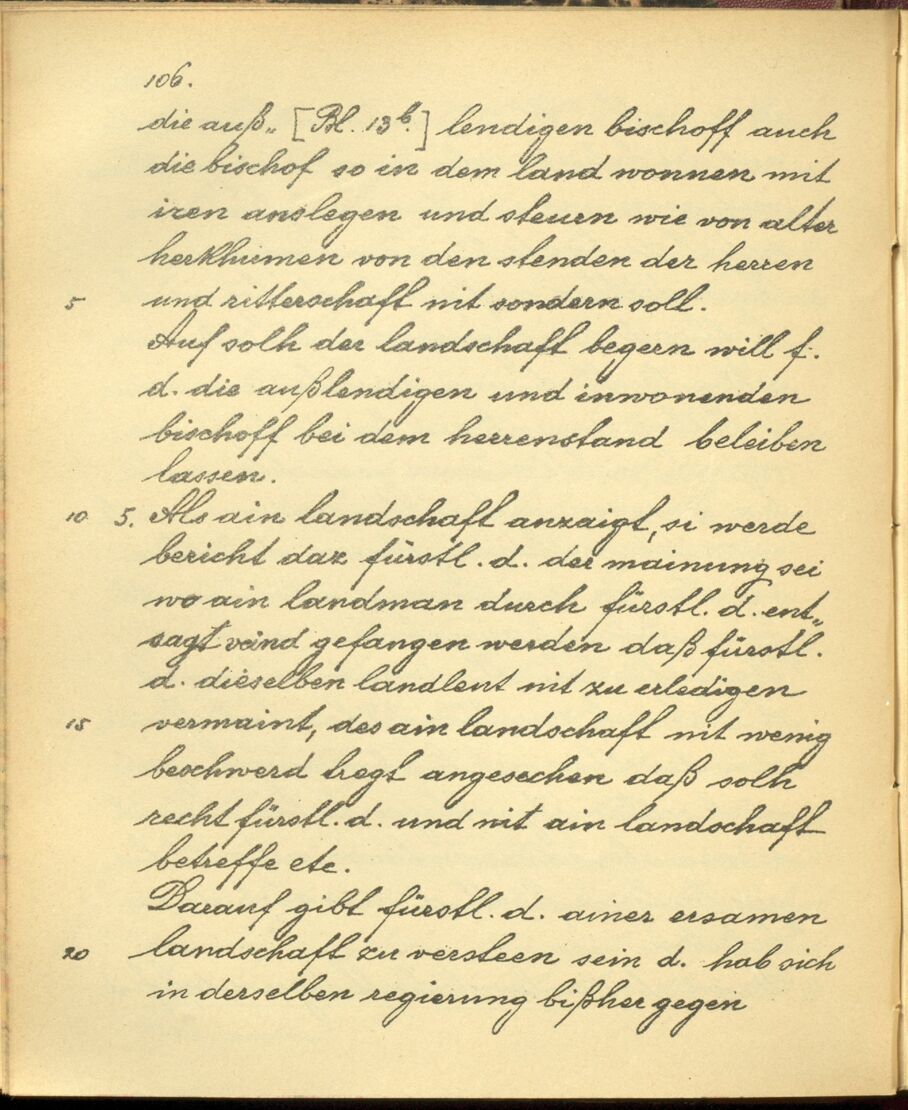 106.
die auß„ [Bl. 13b.] lendigen bischoff auch
die bischof so in dem land wonnen mit
iren anslegen und steuern wie von alter
herkhumen von den stenden der herren
5 und ritterschaft nit sondern soll.
Auf solh der landschaft begern will f.
d. die außlendigen und inwonenden
bischoff bei dem herrenstand beleiben
lassen.
10 5. Als ain landschaft anzaigt, si werde
bericht daz fürstl. d. der mainung sei
wo ain landman durch fürstl. d. ent„
sagt veind gefangen werden daß fürstl.
d. dieselben landleut nit zu erledigen
15 vermaint, des ain landschaft nit wenig
beschwerd tregt angesechen daß solh
recht fürstl. d. und nit ain landschaft
betreffe etc.
Darauf gibt fürstl. d. ainer ersamen
20 landschaft zu versteen sein d. hab sich
in derselben regierung bißher gegen